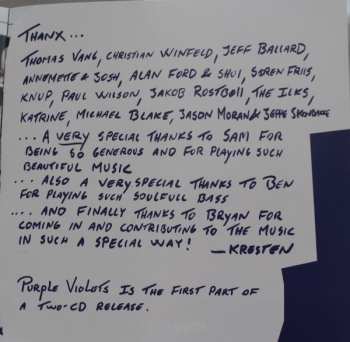 THANX...
THOMAS VANG, CHRISTIAN WINFELD, JEFF BALLARD,
ANNEMETTE & JOSH, ALAN FORD & SHUI, SØREN FRIIS,
KNUP, PAUL WILSON, JAKOB ROSTBØLL, THE ILKS,
KATRINE, MICHAEL BLAKE, JASON MORAN & JEPPE
... A VERY SPECIAL THANKS TO SAM FOR
BEING SO GENEROUS AND FOR PLAYING SUCH
BEAUTIFUL MUSIC
... ALSO A VERY SPECIAL THANKS TO BEN
FOR PLAYING SUCH SOULFULL BASS
... AND FINALLY THANKS TO BRYAN FOR
COMING IN AND CONTRIBUTING TO THE MUSIC
IN SUCH A SPECIAL WAY! — KRESTEN
PURPLE VIOLETS IS THE FIRST PART OF
A TWO-CD RELEASE.